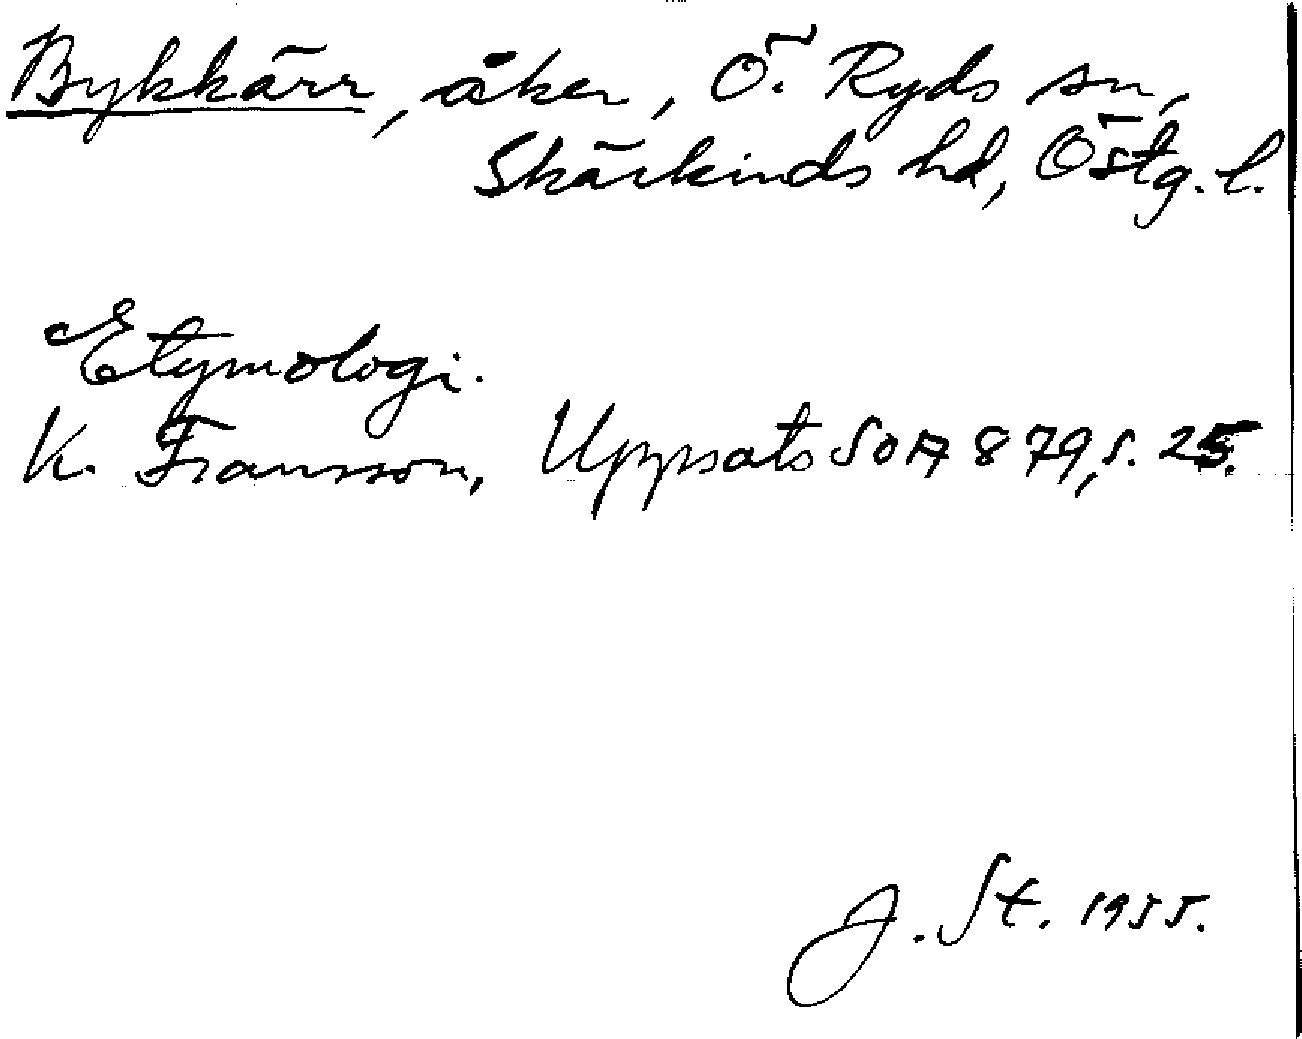 Bykkärr, åker, Ö. Ryds sn,
Skärkinds hd, Östg. l.
Etymologi.
K. Fransson, Uppsats SOA 879, s. 25.
J. St. 1955.